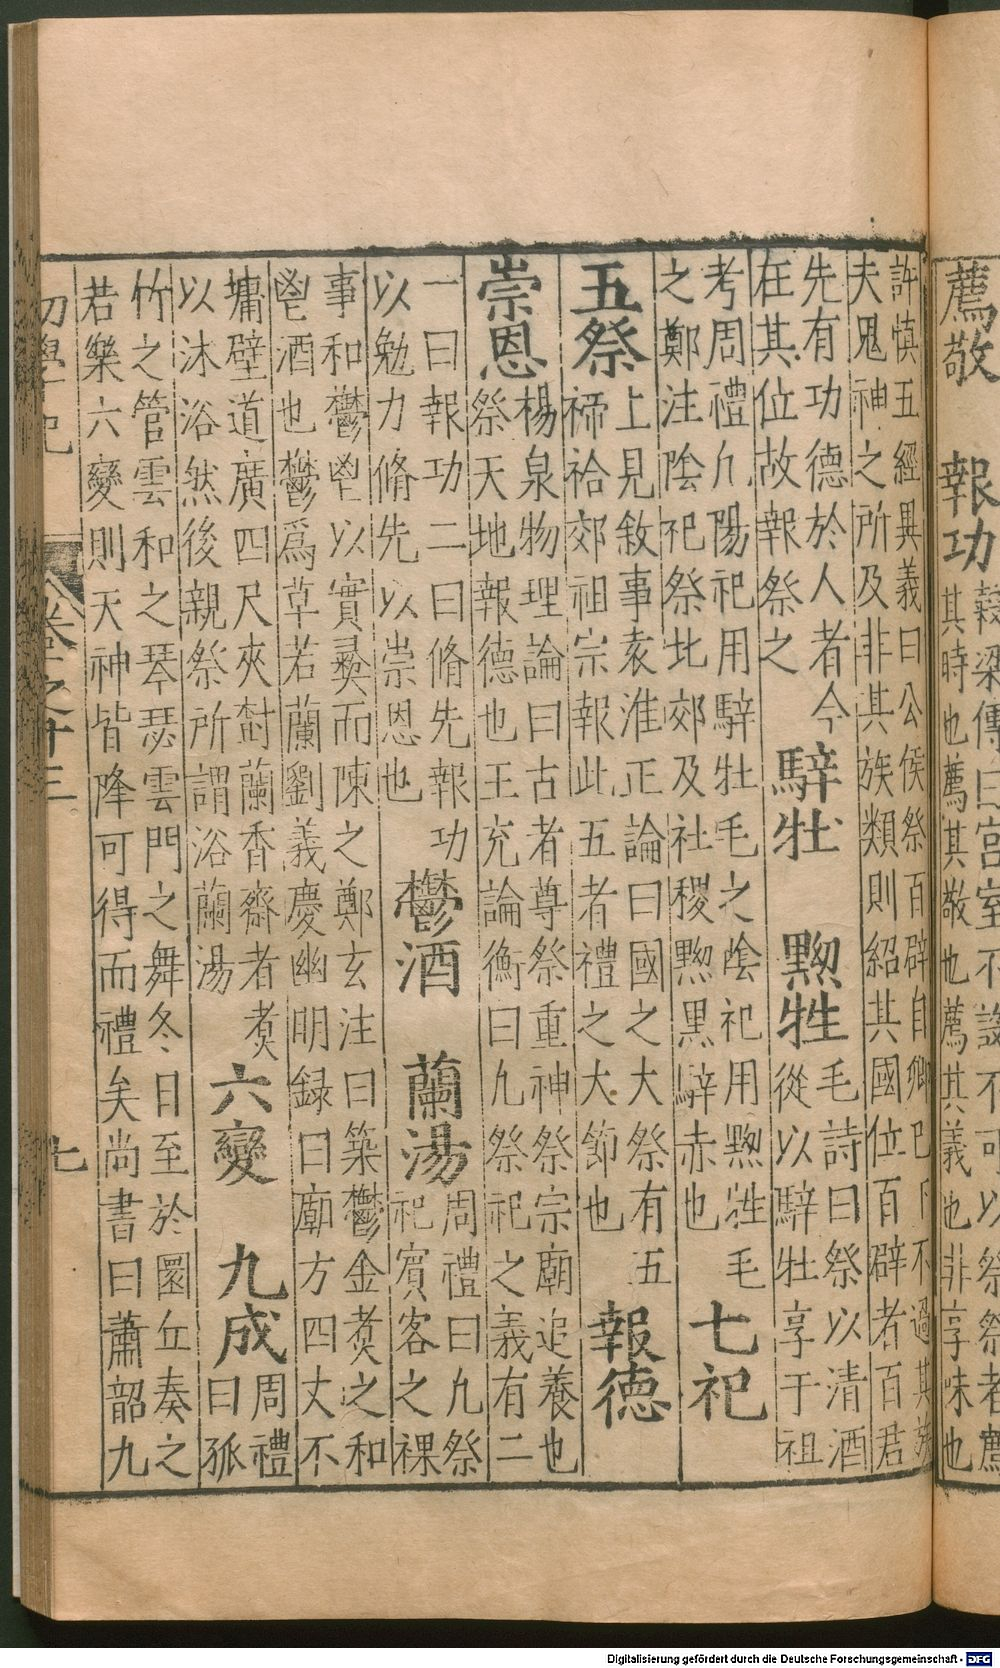 薦敬　報功
穀梁傳曰宮室不設不可以祭祭者薦
其時也薦其敬也薦其義也非享味也
許慎五經異義曰公侯祭百辟自卿已下不過其族
夫鬼神之所及非其族類則紹其國位百辟者百君
先有功德於人者今
在其位故報祭之
騂牡　黝牲
毛詩曰祭以清酒
從以騂牡享于祖
考周禮凡陽祀用騂牡毛之陰祀用黝牲毛
之鄭注陰祀祭北郊及社稷黝黑騂赤也
七祀
五祭
上見敘事袁淮正論曰國之大祭有五
禘祫郊祖宗報此五者禮之大節也
報德
崇恩
楊泉物理論曰古者尊祭重神祭宗廟追養也
祭天地報德也王充論衡曰凡祭祀之義有二
一曰報功二曰脩先報功
以勉力脩先以崇恩也
鬱酒　蘭湯
周禮曰凡祭
祀賓客之祼
事和鬱鬯以實彝而陳之鄭玄注曰築鬱金煑之和
鬯酒也鬱爲草若蘭劉義慶幽明録曰廟方四丈不
墉壁道廣四尺夾樹蘭香齋者煑
以沐浴然後親祭所謂浴蘭湯
六變　九成
周禮
曰孤
竹之管雲和之琴瑟雲門之舞冬日至於圜丘奏之
若樂六變則天神皆降可得而禮矣尚書曰蕭韶九
初學記　卷之十三　七
Digitalisierung gefördert durch die Deutsche Forschungsgemeinschaft - DFG